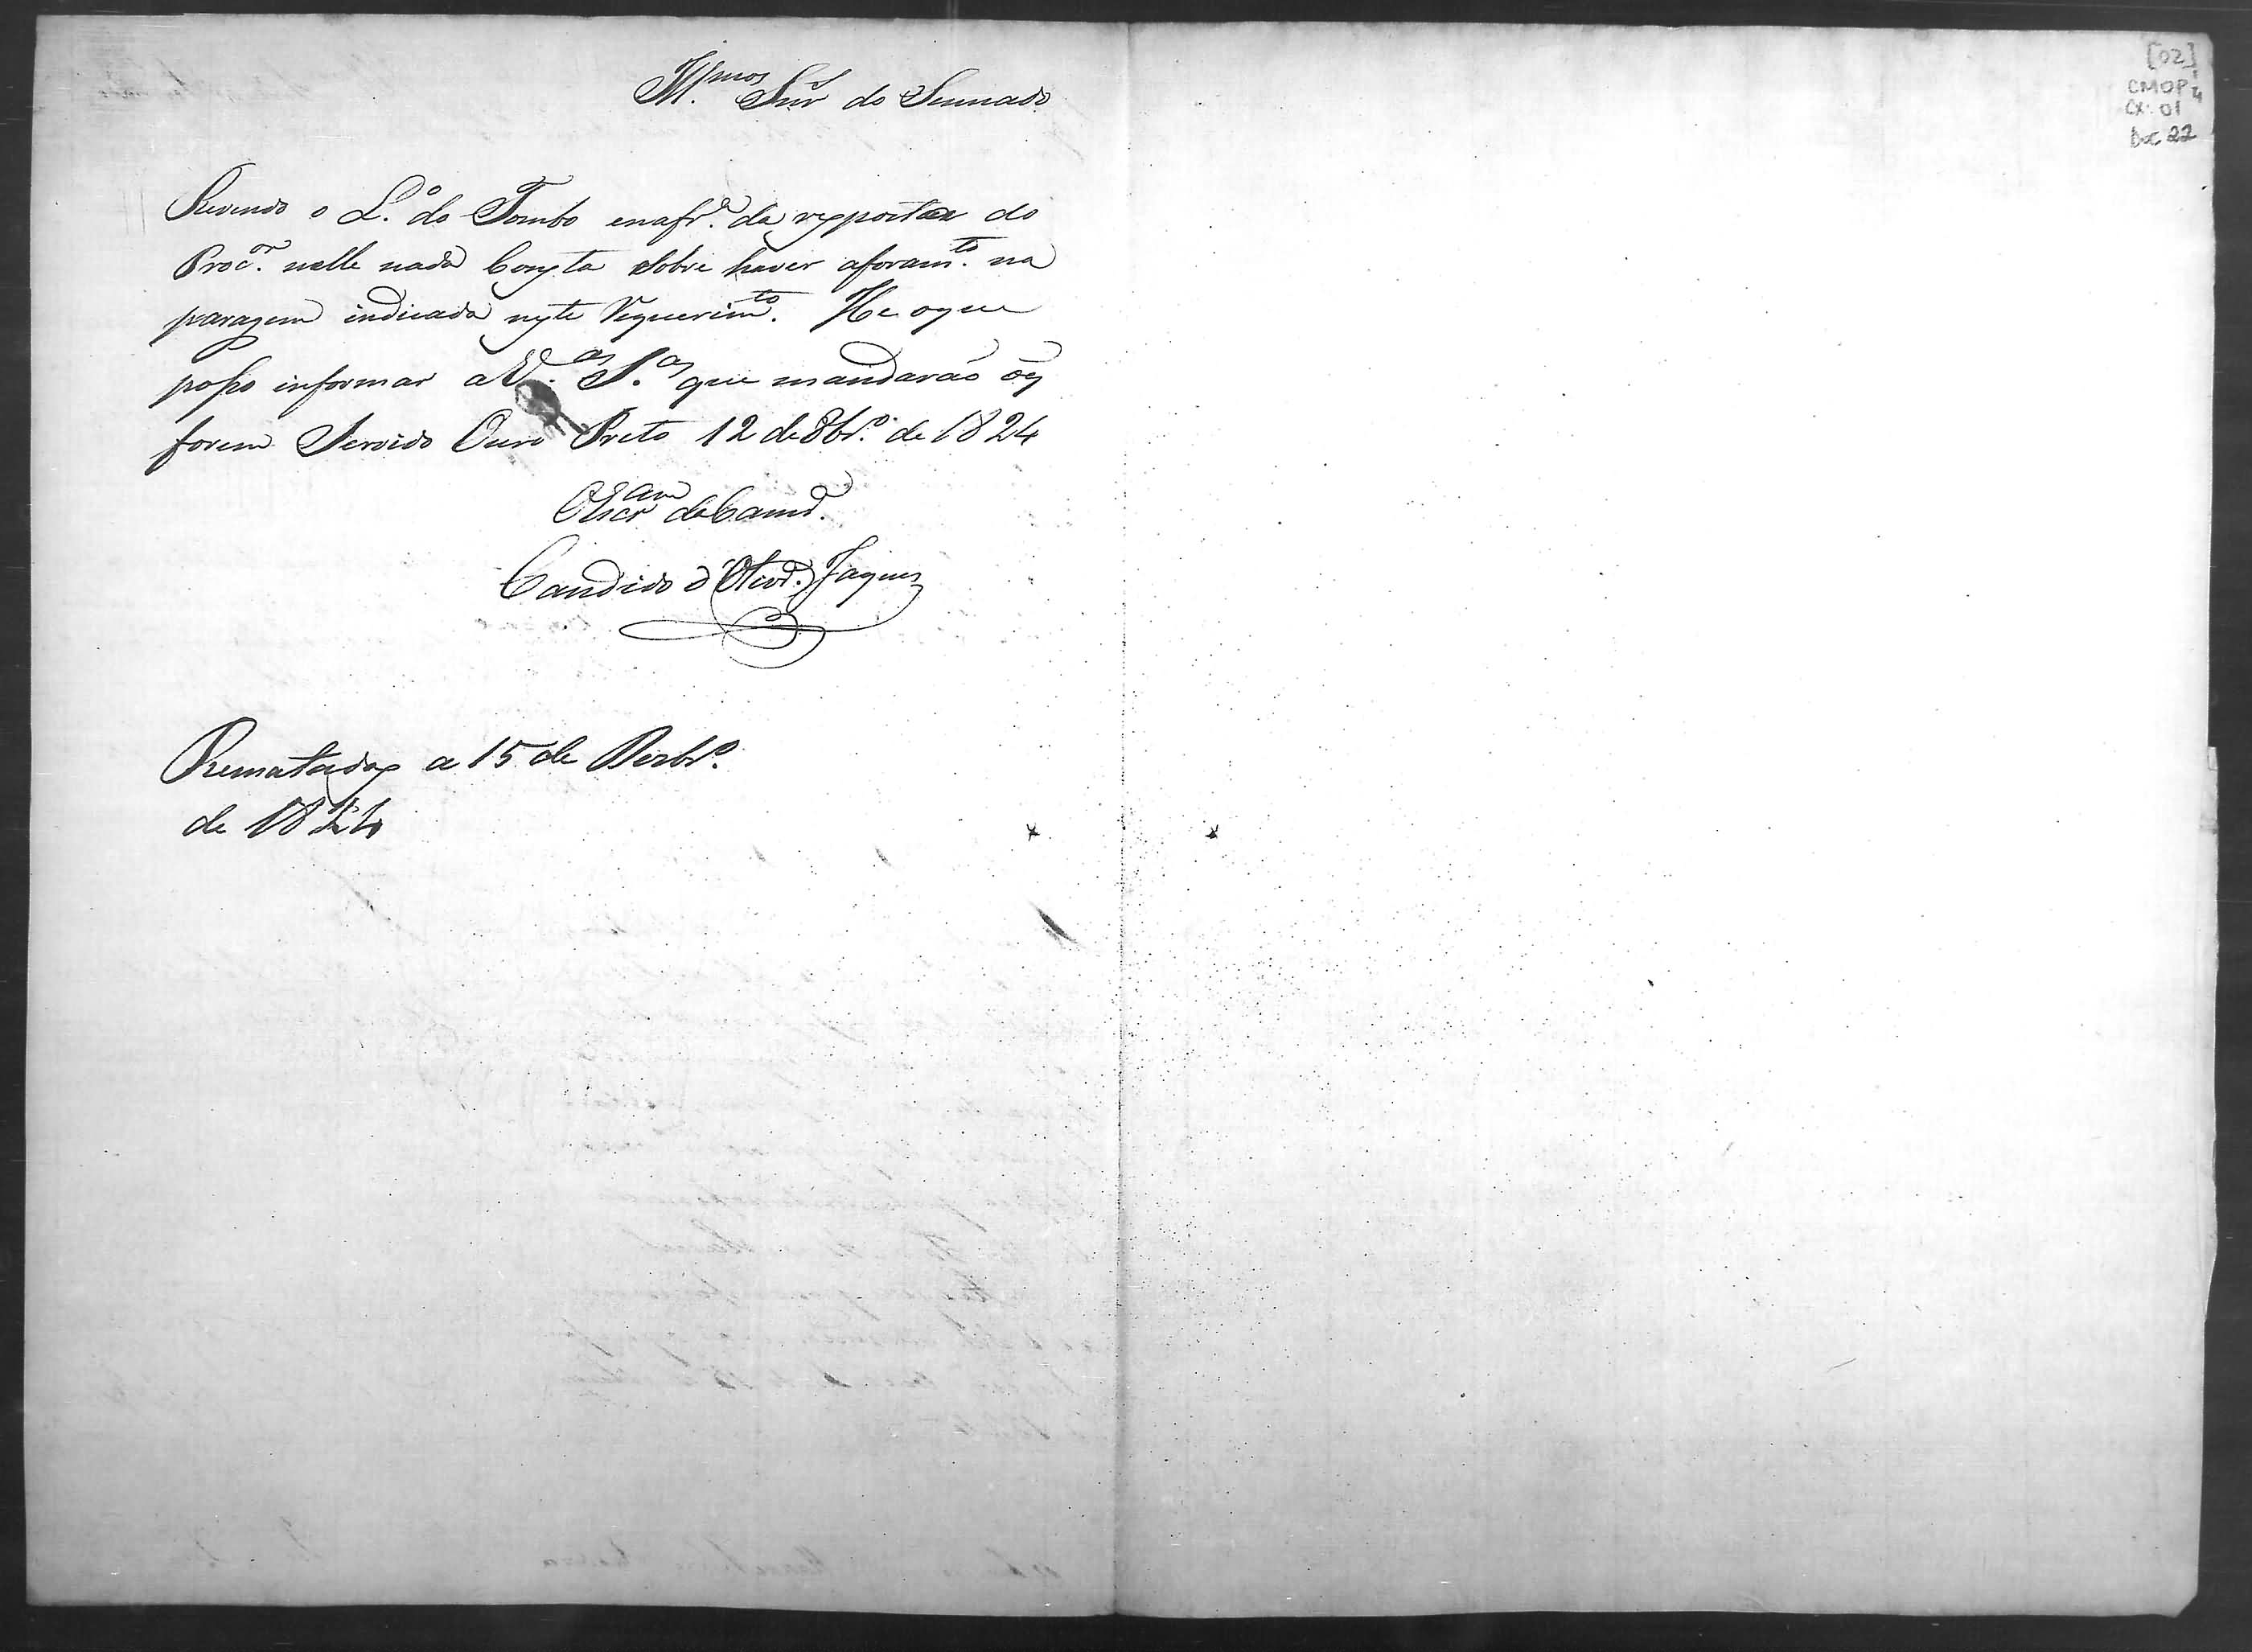 Ill.mos Snr.s do Sennado
Revendo o L.o do Tombo enafr.a da resposta do
Proc.or nelle nada Consta sobre haver aforam.to na
paragem indicada neste Requerim.to. He oque
posso informar a V.as S.as que mandaraõ oq̃
forem Servido Ouro Preto 12 de 8br.o de 1824
OEscr.am da Cam.a
Candido d'Oliv.ra Jaques
Rematados a 15 de Dezbr.o
de 1824
[02]
CMOP
CX: 01
Doc 22